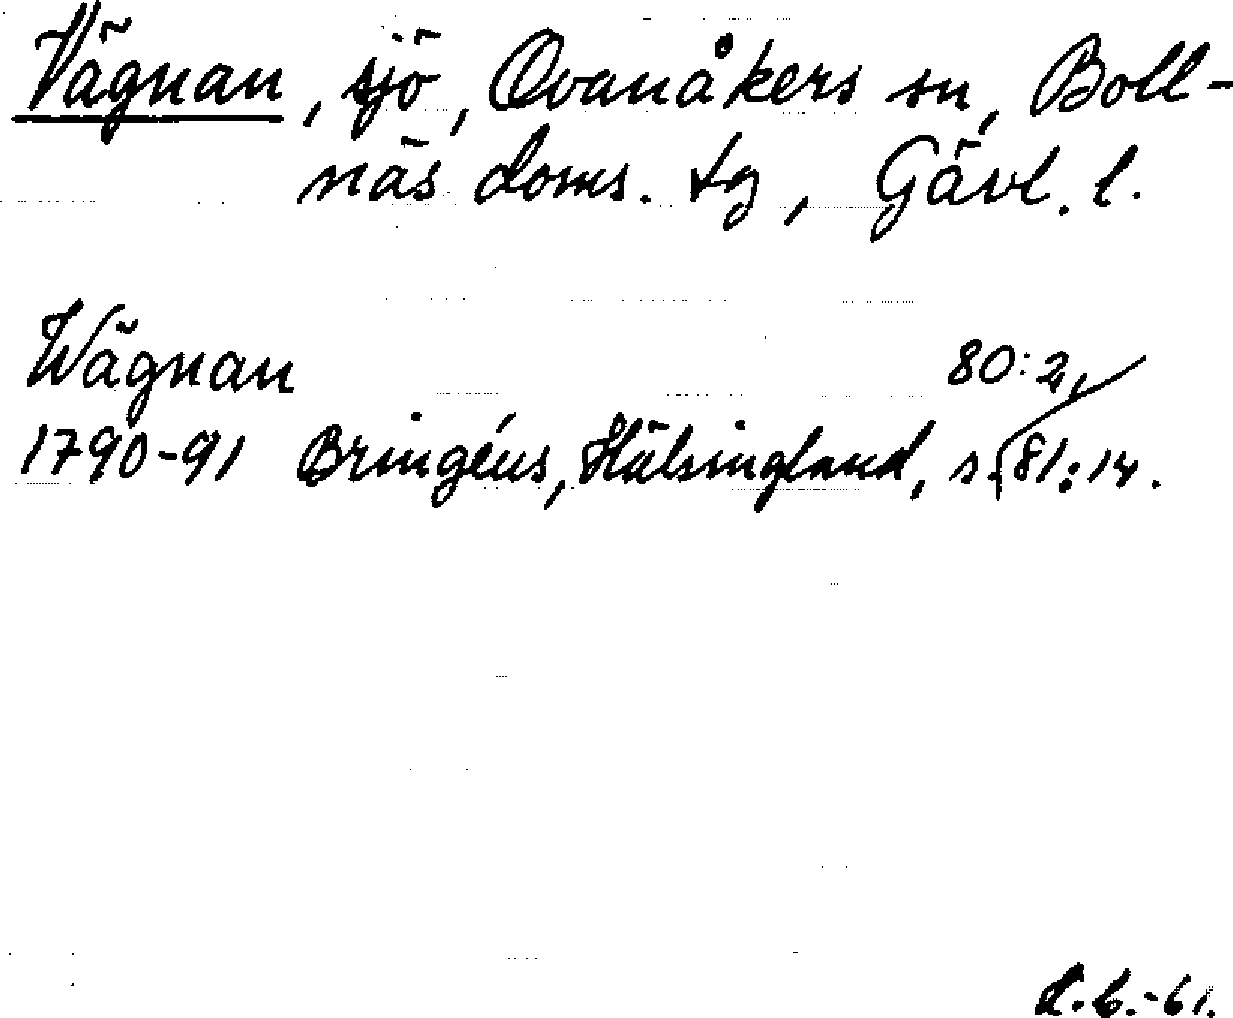 Vägnan, sjö, Ovanåkers sn, Boll-
näs doms. tg, Gävl. l.
Wägnan 80:2,
1790-91 Bringéus, Hälsingland, s. 81:14.
L.b.-61.